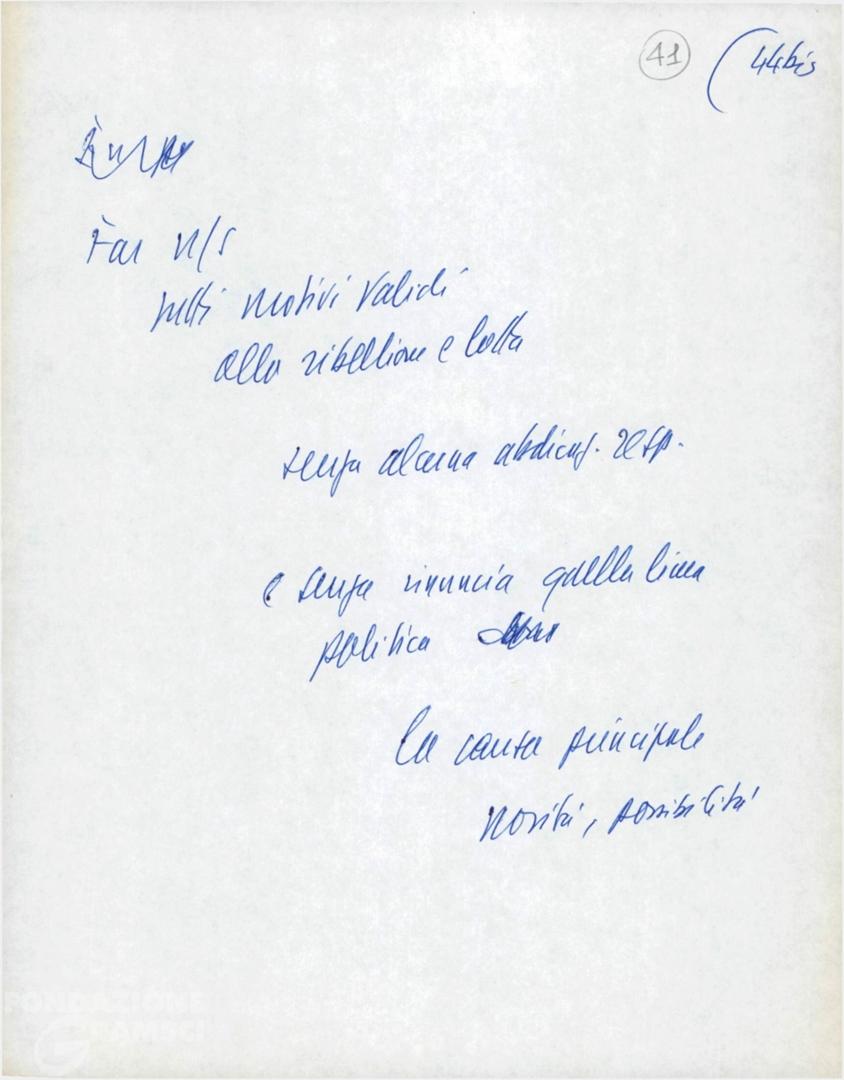 41 (44bis
Far n/s
tutti motivi validi
alla ribellione e lotta
senza alcuna abdicaz. resp.
e senza rinuncia quella linea
politica
la causa principale
novità, possibilità
FONDAZIONE
GRAMSCI